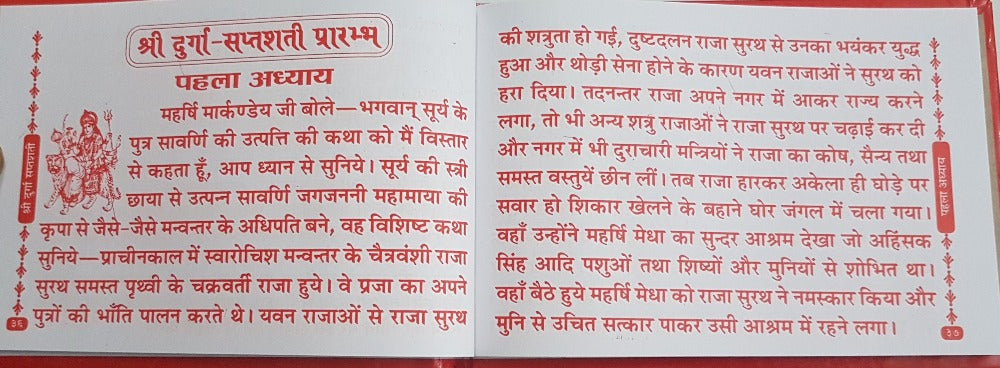 श्री दुर्गा-सप्तशती प्रारम्भ
पहला अध्याय
महर्षि मार्कण्डेय जी बोले—भगवान् सूर्य के
पुत्र सावर्णि की उत्पत्ति की कथा को मैं विस्तार
से कहता हूँ, आप ध्यान से सुनिये। सूर्य की स्त्री
छाया से उत्पन्न सावर्णि जगजननी महामाया की
कृपा से जैसे-जैसे मन्वन्तर के अधिपति बने, वह विशिष्ट कथा
सुनिये—प्राचीनकाल में स्वारोचिश मन्वन्तर के चैत्रवंशी राजा
सुरथ समस्त पृथ्वी के चक्रवर्ती राजा हुये। वे प्रजा का अपने
पुत्रों की भाँति पालन करते थे। यवन राजाओं से राजा सुरथ
श्री दुर्गा सप्तशती
३६
की शत्रुता हो गई, दुष्टदलन राजा सुरथ से उनका भयंकर युद्ध
हुआ और थोड़ी सेना होने के कारण यवन राजाओं ने सुरथ को
हरा दिया। तदनन्तर राजा अपने नगर में आकर राज्य करने
लगा, तो भी अन्य शत्रु राजाओं ने राजा सुरथ पर चढ़ाई कर दी
और नगर में भी दुराचारी मन्त्रियों ने राजा का कोष, सैन्य तथा
समस्त वस्तुयें छीन लीं। तब राजा हारकर अकेला ही घोड़े पर
सवार हो शिकार खेलने के बहाने घोर जंगल में चला गया।
वहाँ उन्होंने महर्षि मेधा का सुन्दर आश्रम देखा जो अहिंसक
सिंह आदि पशुओं तथा शिष्यों और मुनियों से शोभित था।
वहाँ बैठे हुये महर्षि मेधा को राजा सुरथ ने नमस्कार किया और
मुनि से उचित सत्कार पाकर उसी आश्रम में रहने लगा।
पहला अध्याय
३७